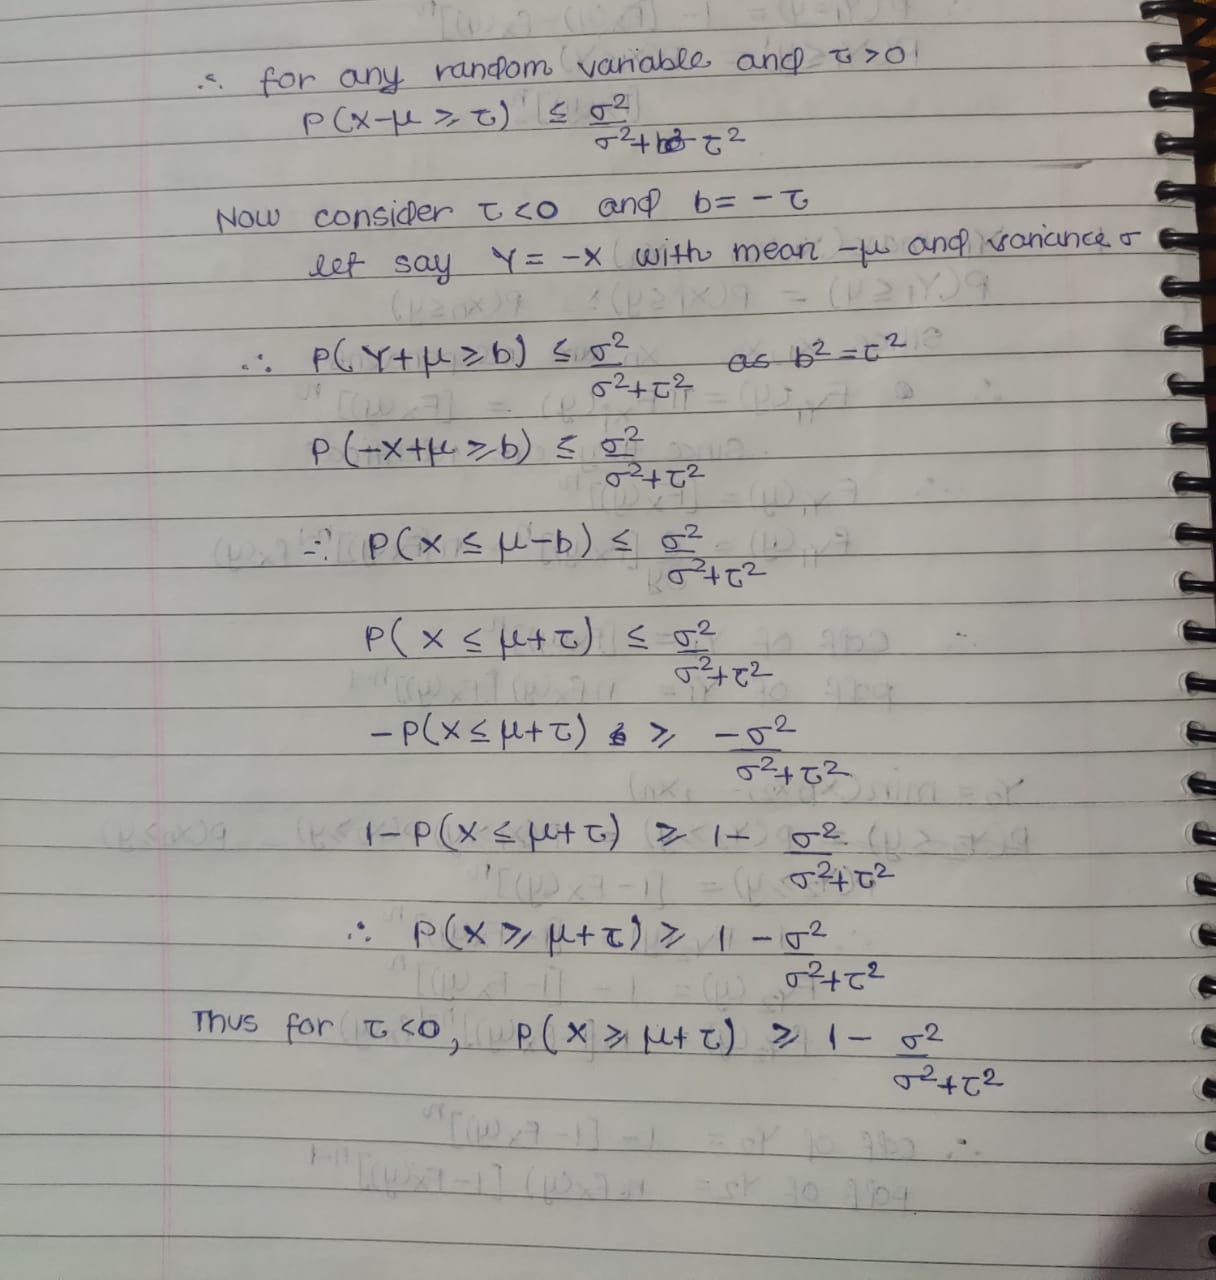 ∴ for any random variable and τ>0
P(x-μ ⩾ τ) ≤ σ²/(σ²+τ²)
Now consider τ<0 and b= -τ
let say Y= -X with mean -μ and variance σ
∴ P(Y+μ ⩾ b) ≤ σ²/(σ²+τ²) as b²=τ²
P(-x+μ ⩾ b) ≤ σ²/(σ²+τ²)
∴ P(x ≤ μ-b) ≤ σ²/(σ²+τ²)
P(x ≤ μ+τ) ≤ σ²/(σ²+τ²)
-P(x ≤ μ+τ) ⩾ -σ²/(σ²+τ²)
1-P(x ≤ μ+τ) ⩾ 1- σ²/(σ²+τ²)
∴ P(x ⩾ μ+τ) ⩾ 1 - σ²/(σ²+τ²)
Thus for τ<0, P(x ⩾ μ+τ) ⩾ 1- σ²/(σ²+τ²)